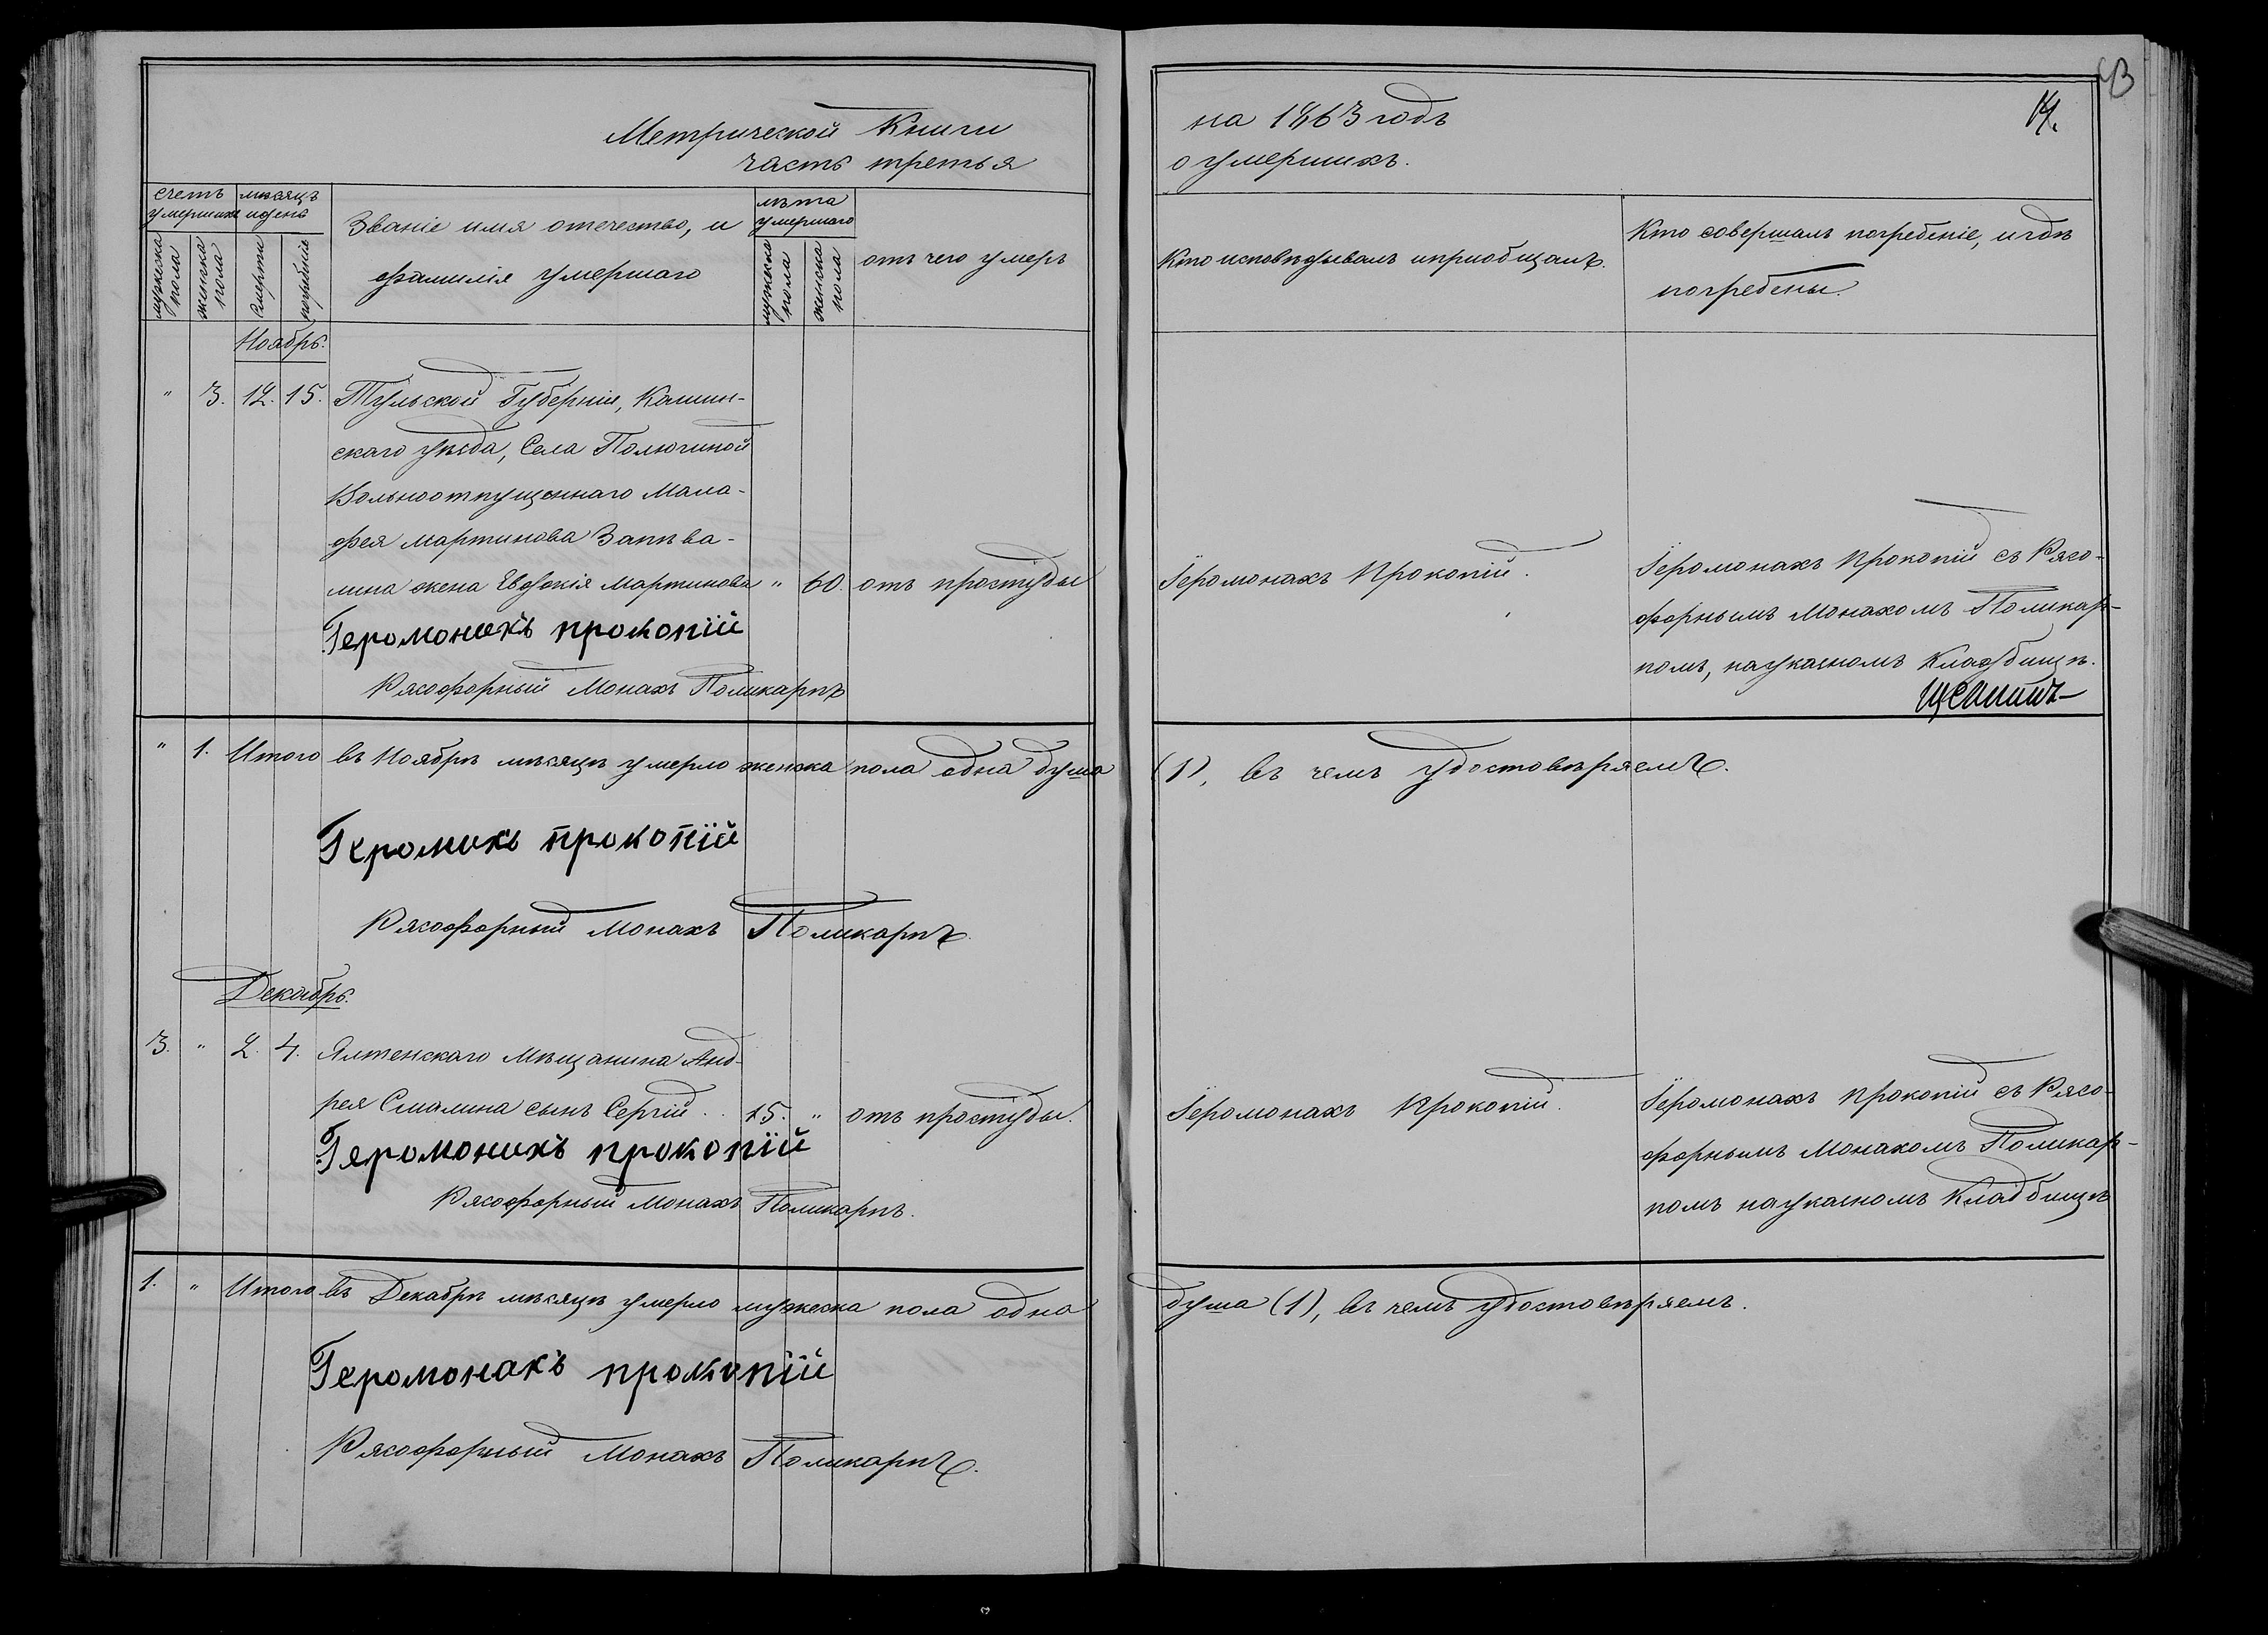 Метрической Книги
часть третья
счетъ умершихъ
мѣсяцъ и день
Званіе имя отечество, и
фамилія умершаго
лѣта умершаго
отъ чего умеръ
мужеска пола
женска пола
смерти
погребенія
мужеска пола
женска пола
Ноябрь.
" 3. 12. 15. Тульской Губерніи, Кашин-
скаго уѣзда, Села Полючиной
Вольноотпущеннаго Мала-
фея мартинова Запѣва-
лина жена Евдокія Мартинова " 60. отъ простуды
Іеромонахъ прокопій
Рясофорный Монахъ Поликарпъ
" 1. Итого въ Ноябрѣ мѣсяцѣ умерло женска пола одна душа
Іеромнхъ прокопій
Рясофорный Монахъ Поликарпъ.
Декабрь.
3. " 2. 4. Ялтенскаго Мѣщанина Анд-
рея Смалина сынъ Сергій .. 15. " отъ простуды.
Іеромонахъ прокопій
Рясофорный Монахъ Поликарпъ.
1. " Итого въ Декабрѣ мѣсяцѣ умерло мужеска пола одна
Іеромонахъ прокопій
Рясофорный Монахъ Поликарпъ.
на 1863 годъ
14.
о умершихъ.
Кто исповѣдывалъ и приобщалъ.
Кто совершалъ погребеніе, и гдѣ
погребены.
Іеромонахъ Прокопій.
Іеромонахъ Прокопій съ Рясо-
форнымъ Монахомъ Поликар-
помъ, на указномъ Кладбищѣ.
(1), въ чемъ удостовѣряемъ.
Іеромонахъ Прокопій.
Іеромонахъ Прокопій съ Рясо-
форнымъ Монахомъ Поликар-
помъ на указномъ Кладбищѣ
душа (1), въ чемъ удостовѣряемъ.